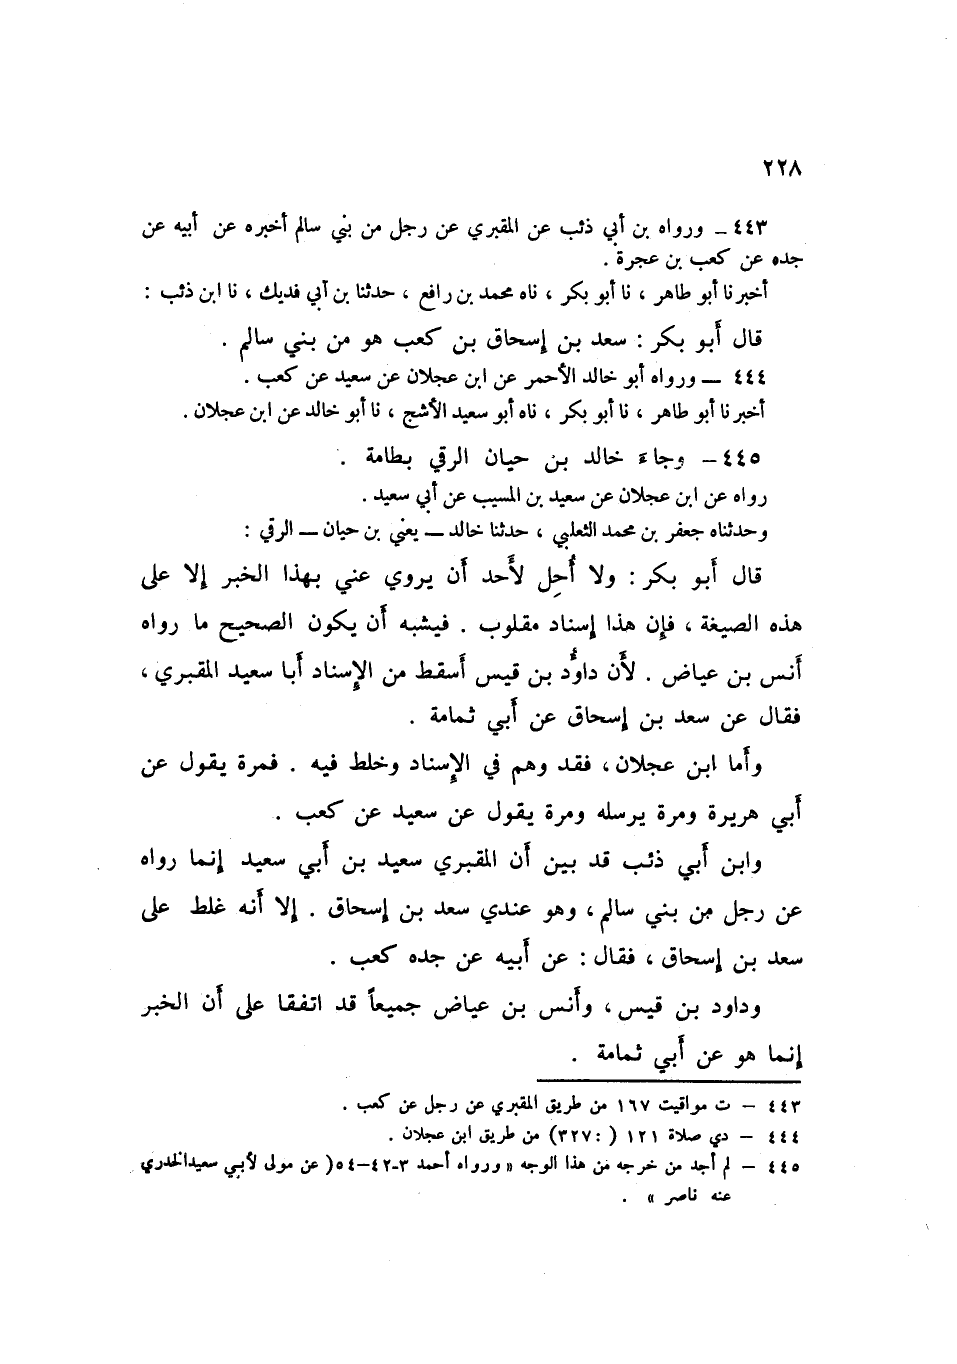 ٢٢٨
٤٤٣ – ورواه بن أبي ذئب عن المقبري عن رجل من بني سالم أخبره عن أبيه عن
جده عن كعب بن عجرة .
أخبرنا أبو طاهر ، نا أبو بكر ، ناه محمد بن رافع ، حدثنا بن آبي فديك ، نا ابن ذئب :
قال أبو بكر : سعد بن إسحاق بن كعب هو من بني سالم .
٤٤٤ – ورواه أبو خالد الأحمر عن ابن عجلان عن سعيد عن كعب .
أخبرنا أبو طاهر ، نا أبو بكر ، ناه أبو سعيد الأشج ، نا أبو خالد عن ابن عجلان .
٤٤٥ – وجاء خالد بن حيان الرقي بطامة .
رواه عن ابن عجلان عن سعيد بن المسيب عن أبي سعيد .
وحدثناه جعفر بن محمد الثعلبي ، حدثنا خالد – يعني بن حيان – الرقي :
قال أبو بكر : ولا أُحِل لأَحد أن يروي عني بهذا الخبر إلا على
هذه الصيغة ، فإن هذا إسناد مقلوب . فيشبه أن يكون الصحيح ما رواه
أنس بن عياض . لأن داوُد بن قيس أسقط من الإسناد أبا سعيد المقبري ،
فقال عن سعد بن إسحاق عن أبي ثمامة .
وأما ابن عجلان ، فقد وهم في الإسناد وخلط فيه . فمرة يقول عن
أبي هريرة ومرة يرسله ومرة يقول عن سعيد عن كعب .
وابن أبي ذئب قد بين أن المقبري سعيد بن أبي سعيد إنما رواه
عن رجل من بني سالم ، وهو عندي سعد بن إسحاق . إلا أنه غلط على
سعد بن إسحاق ، فقال : عن أبيه عن جده كعب .
وداود بن قيس ، وأنس بن عياض جميعاً قد اتفقا على أن الخبر
إنما هو عن أبي ثمامة .
٤٤٣ – ت مواقيت ١٦٧ من طريق المقبري عن رجل عن كعب .
٤٤٤ – دي صلاة ١٢١ ( :٣٢٧) من طريق ابن عجلان .
٤٤٥ – لم أجد من خرجه من هذا الوجه « ورواه أحمد ٣-٤٢–٥٤( عن مولى لأبي سعيدالخدري
عنه ناصر » .